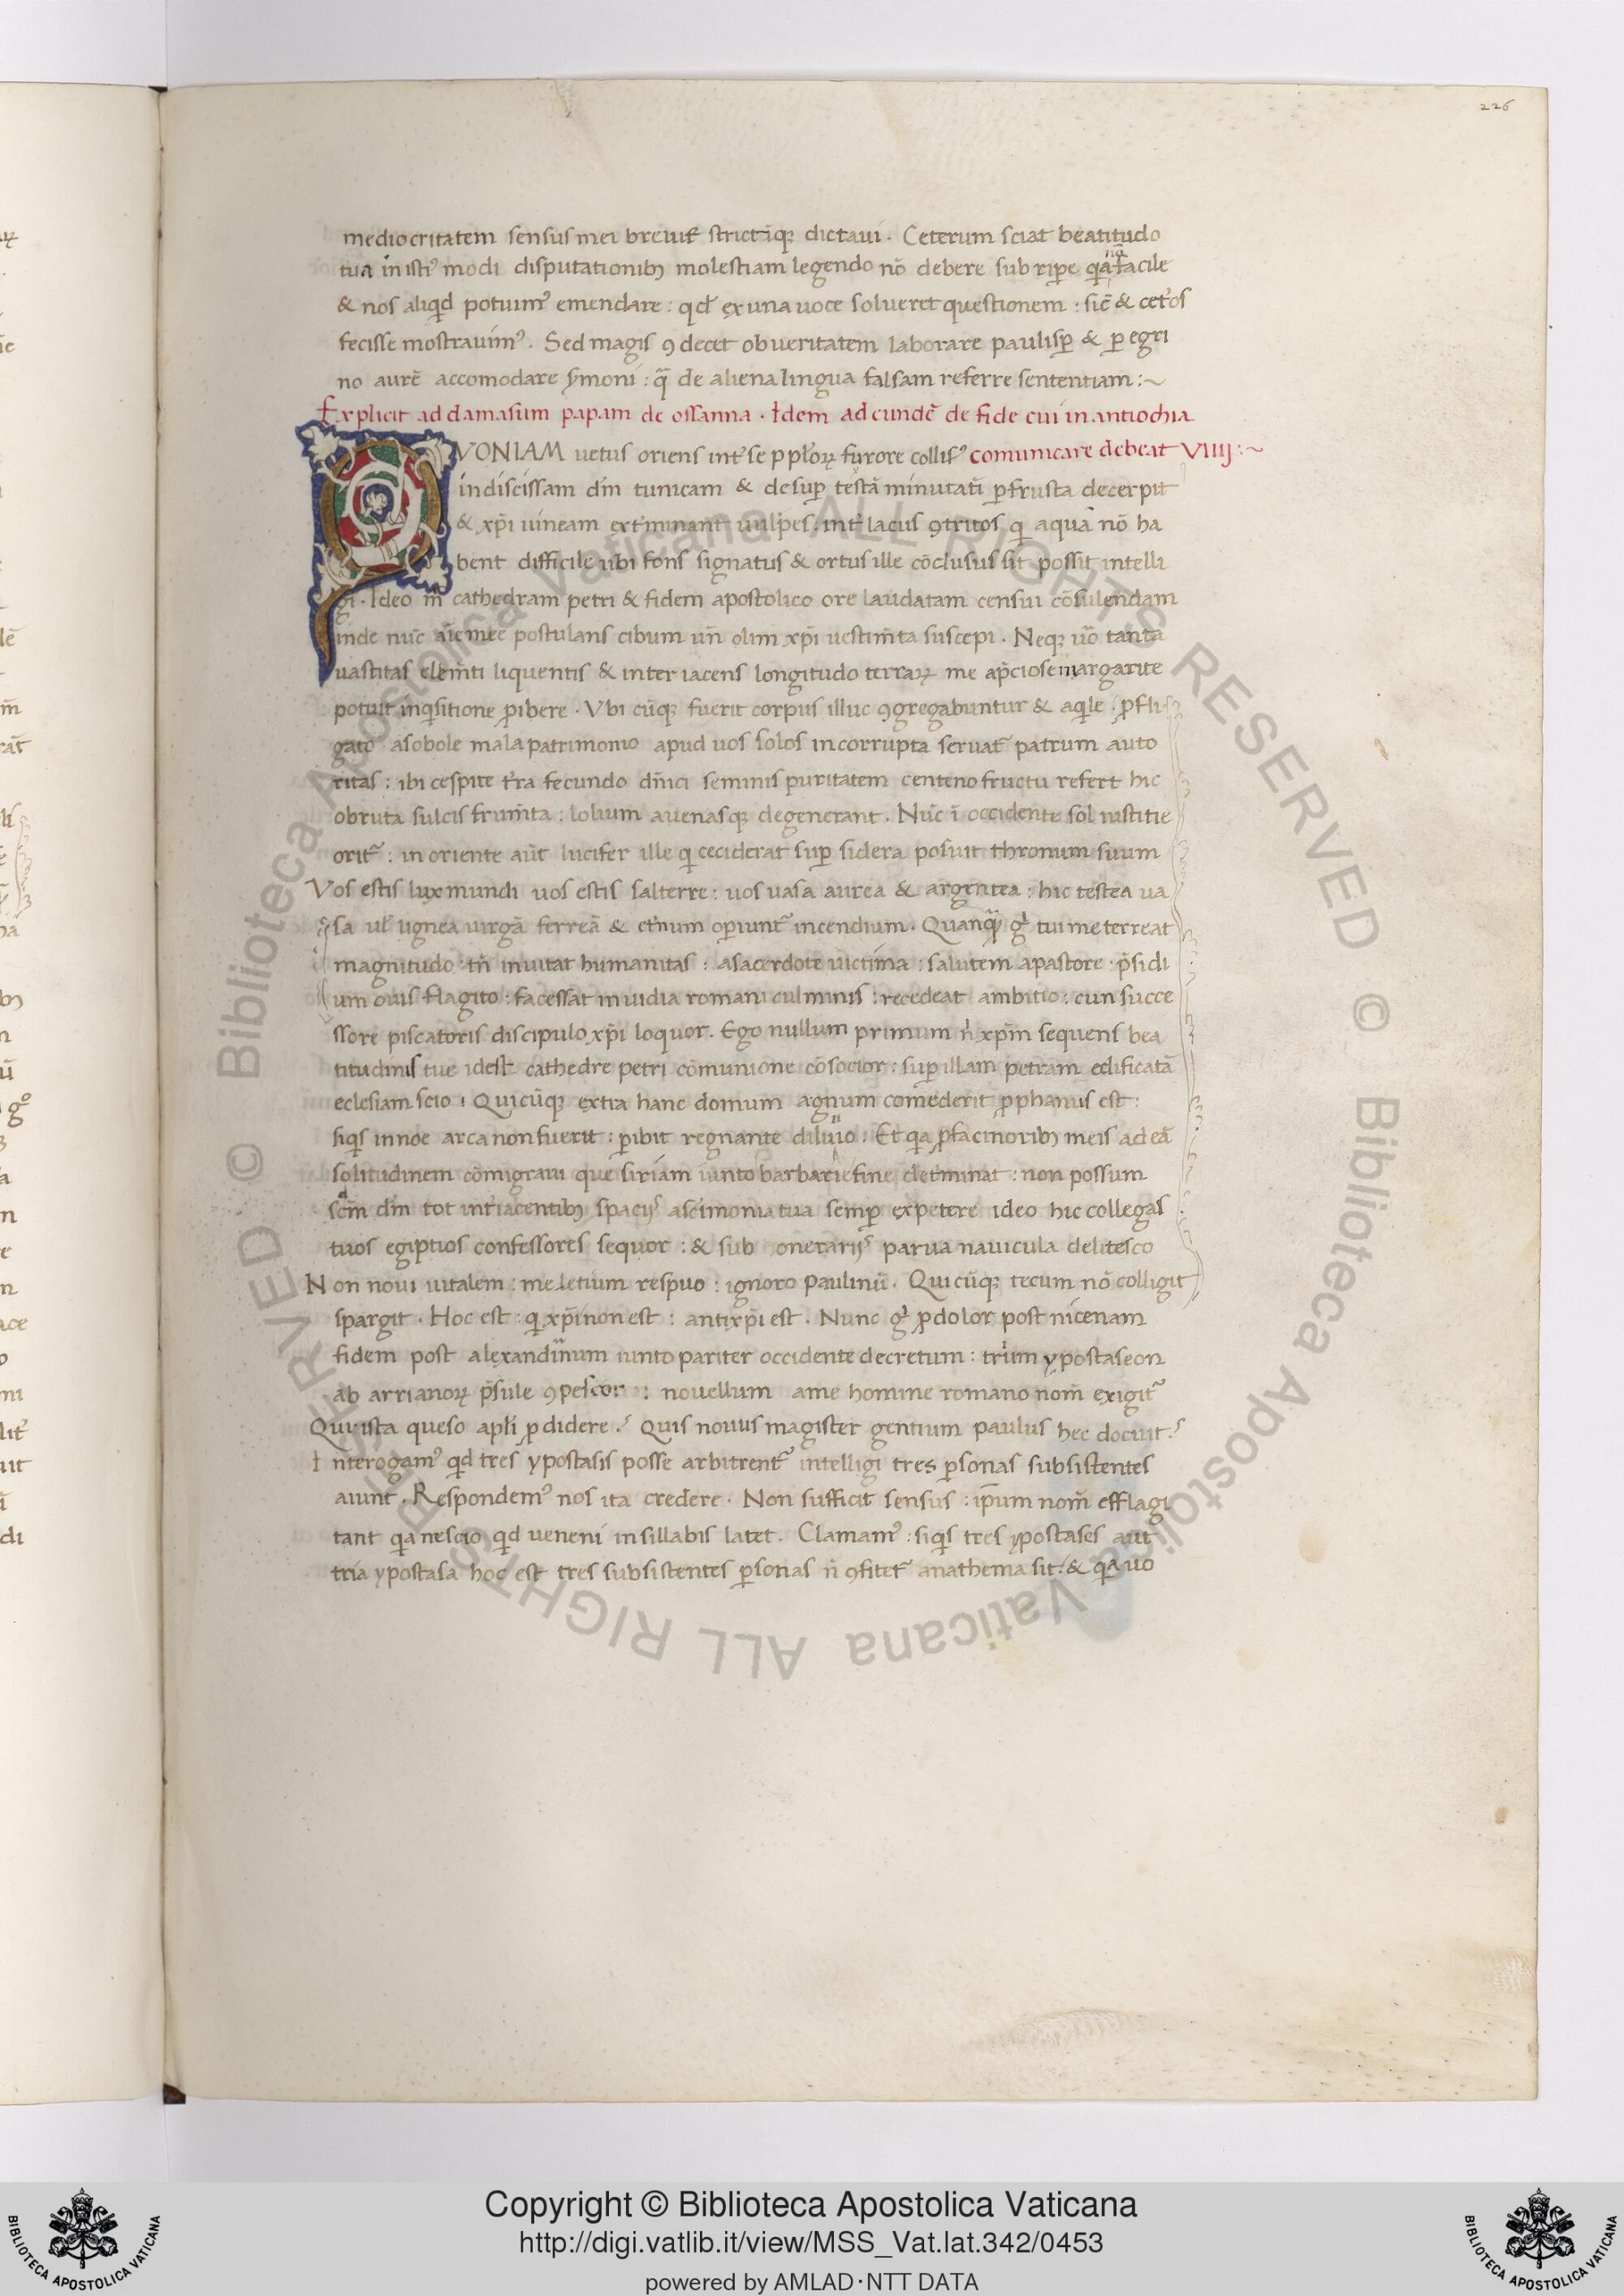 226
mediocritatem sensus mei breuit᷑ strictīq; dictaui. Ceterum sciat beatitudo
tua in isti᾿modi disputationib; molestiam legendo nō debere subripe qͥa nā facile
& nos aliqͥd potuim᾿ emendare: qd᷑ ex una uoce solueret questionem: sic̄ & cet᷑os
fecisse mostrauim᾿. Sed magis ꝯdecet ob ueritatem laborare paulisꝑ & ꝑegri
no aurē accomodare s̓moni: qͣ̄ de aliena lingua falsam referre sententiam:~
Explicit ad damasum papam de ossanna. Idem ad eundē de fide cui in antiochia
comunicare debeat VIIIJ:~
QVONIAM uetus oriens int᷑ se p pl̓oꝝ furore collis᾿
indiscissam dn̄i tunicam & desuꝑ testā minutatī ꝑ frusta decerpit
& xp̄i uineam ext᷑minant uulpes: int᷑ lacus ꝯtritos qͥ aquā nō ha
bent difficile ubi fons signatus & ortus ille cōclusus sit possit intelli
gi. Ideo m̄ cathedram petri & fidem apostolico ore laudatam censui cōsulendam
inde nūc aīe mee postulans cibum un̄ olim xp̄i uestim̄ta suscepi. Neq; uō tanta
uastitas elem̄ti liquentis & inter iacens longitudo terraꝝ me a p̄ciose margarite
potuit inqͥsitione ꝓibere. Vbi cūq; fuerit corpus illuc ꝯgregabuntur & aqͥle. ꝓfli
gato a sobole mala patrimonio apud uos solos incorrupta seruat᷑ patrum auto
ritas: ibi cespite t᷑ra fecundo dn̄ici seminis puritatem centeno fructu refert hic
obruta sulcis frum̄ta: lolium auenasq; degenerant. Nūc ī occidente sol iustitie
orit᷑: in oriente aūt lucifer ille qͥ ceciderat suꝑ sidera posuit thronum suum
Vos estis lux mundi uos estis sal terre: uos uasa aurea & argentea: hic testea ua
sa ul̓ lignea uirgā ferreā & et᷑num oꝑiunt᷑ incendium. Quanqͣ̄ gͥ tui me terreat
magnitudo: tn̄ inuitat humanitas: a sacerdote uictima: salutem a pastore: p̄sidi
um ouis flagito: facessat inuidia romani culminis: recedeat ambitio: cun succe
ssore piscatoris discipulo xp̄i loquor. Ego nullum primum nͥ xp̄m sequens bea
titudinis tue idest cathedre petri cōmunione cōsocior: suꝑ illam petram edificatā
eclesiam scio. Quicūq; extra hanc domum agnum comederit ꝓphanus est:
siqͥs in noe arca non fuerit: ꝑibit regnante diluuio. Et qͥa ꝓ facinorib; meis ad eā
solitudinem cōmigraui que siriam iunto barbarie fine det᷑minat: non possum
scm̄ dn̄i tot int᷑iacentib; spacijs a scimonia tua semꝑ expetere ideo hic collegas
tuos egiptios confessores sequor: & sub onerarijs parua nauicula delitesco
Non noui uitalem: meletium respuo: ignoro paulinū. Quicūq; tecum nō colligit
spargit. Hoc est: qͥ xp̄i non est: antixp̄i est. Nunc gͥ ꝓdolor post nicenam
fidem post alexandrinum iunto pariter occidente decretum: trium ypostaseon
ab arrianoꝝ p̄sule ꝯpescor: nouellum a me homine romano nom̄ exigit᷑
Qui ista queso apl̓i ꝓdidere? Quis nouus magister gentium paulus hec docuit?
Interogam᾿ qͥd tres ypostasis posse arbitrent᷑ intelligi tres ꝑsonas subsistentes
aiunt. Respondem᾿ nos ita credere. Non sufficit sensus: ip̄um nom̄ efflagi
tant qͥa nescio qͥd ueneni in sillabis latet. Clamam᾿: siqͥs tres ypostases aut
tria ypostasa hoc est tres subsistentes ꝑsonas n̄ ꝯfitet᷑ anathema sit: & qͥa uo
© Biblioteca Apostolica Vaticana ALL RIGHTS RESERVED © Biblioteca Apostolica Vaticana ALL RIGHTS RESERVED
Copyright © Biblioteca Apostolica Vaticana
http://digi.vatlib.it/view/MSS_Vat.lat.342/0453
powered by AMLAD·NTT DATA
BIBLIOTECA APOSTOLICA VATICANA
BIBLIOTECA APOSTOLICA VATICANA